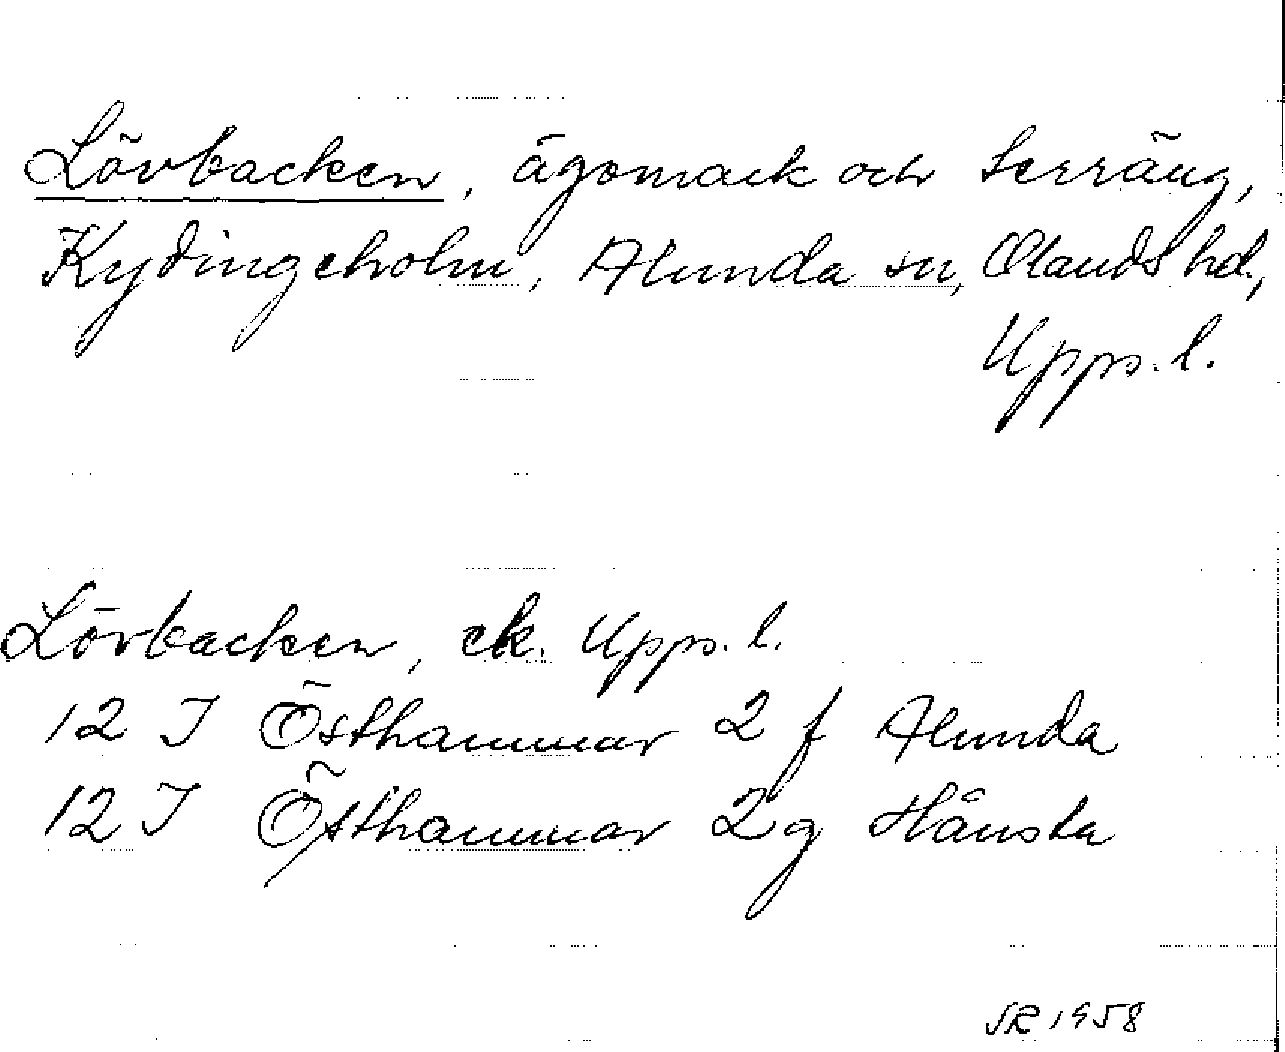 Lövbacken, ägomark och terräng,
Kydingeholm, Alunda sn, Olands hd,
Upps. l.
Lövbacken, ek. Upps. l.
12 I Östhammar 2 f Alunda
12 I Östhammar 2 g Hånsta
SR 1958